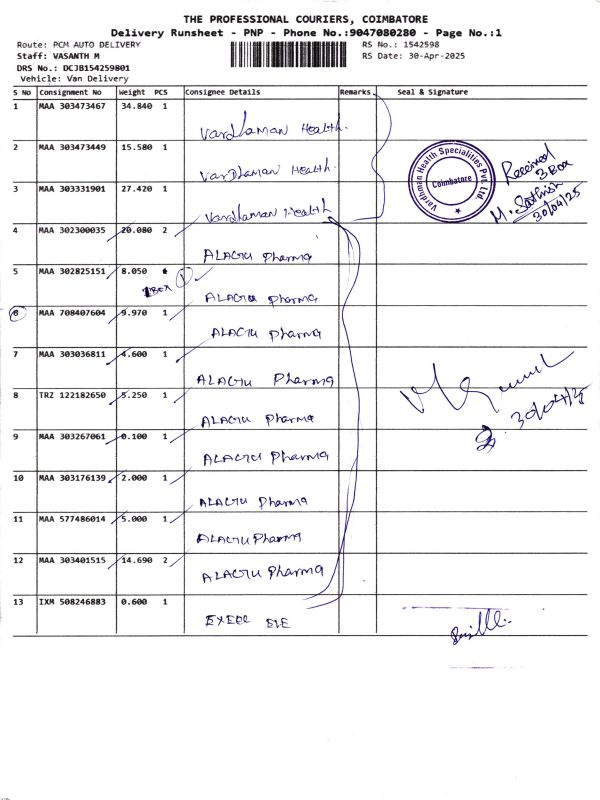 THE PROFESSIONAL COURIERS, COIMBATORE
Delivery Runsheet - PNP - Phone No.:9047080280 - Page No.:1
Route: PCM AUTO DELIVERY RS No.: 1542598
Staff: VASANTH M RS Date: 30-Apr-2025
DRS No.: DCJB154259801
Vehicle: Van Delivery
S No Consignment No Weight PCS Consignee Details Remarks Seal & Signature
1 MAA 303473467 34.840 1
Vardhaman Health.
2 MAA 303473449 15.580 1
Vardhaman Health.
3 MAA 303331901 27.420 1
Vardhaman Health
Vardhaman Health Specialities Pvt. Ltd.
Coimbatore
Received
3 Box
M. Sathish
30/04/25
4 MAA 302300035 20.080 2
ALAGU Pharma
5 MAA 302825151 8.050 1
1 BOX
ALAGU Pharma
6 MAA 708407604 9.970 1
ALAGU Pharma
7 MAA 303036811 4.600 1
ALAGU Pharma
8 TRZ 122182650 5.250 1
ALAGU Pharma
30/04/25
9 MAA 303267061 0.100 1
ALAGU Pharma
10 MAA 303176139 2.000 1
ALAGU Pharma
11 MAA 577486014 5.000 1
ALAGU Pharma
12 MAA 303401515 14.690 2
ALAGU Pharma
13 IXM 508246883 0.600 1